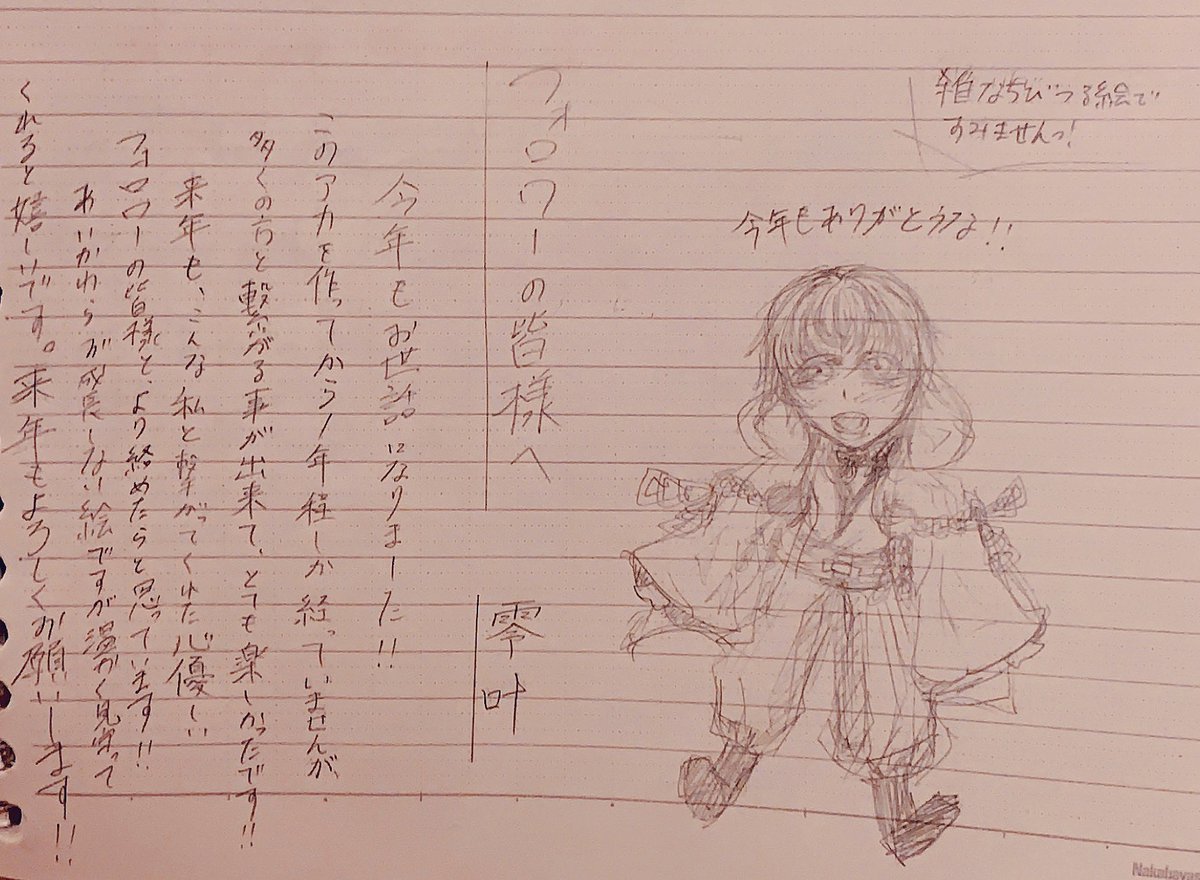 雑なちびつる絵で
すみませんっ!
今年もありがとうな!!
フォロワーの皆様へ
零叶
今年もお世話になりました!!
このアカを作ってから1年程しか経っていませんが、
多くの方と繋がる事が出来て、とても楽しかったです!!
来年も、こんな私と繋がってくれた心優しい
フォロワーの皆様と、より絡めたらと思っています!!
あいかわらずが成長しない絵ですが温かく見守って
くれると嬉しいです。来年もよろしくお願いします!!
Nakabayas